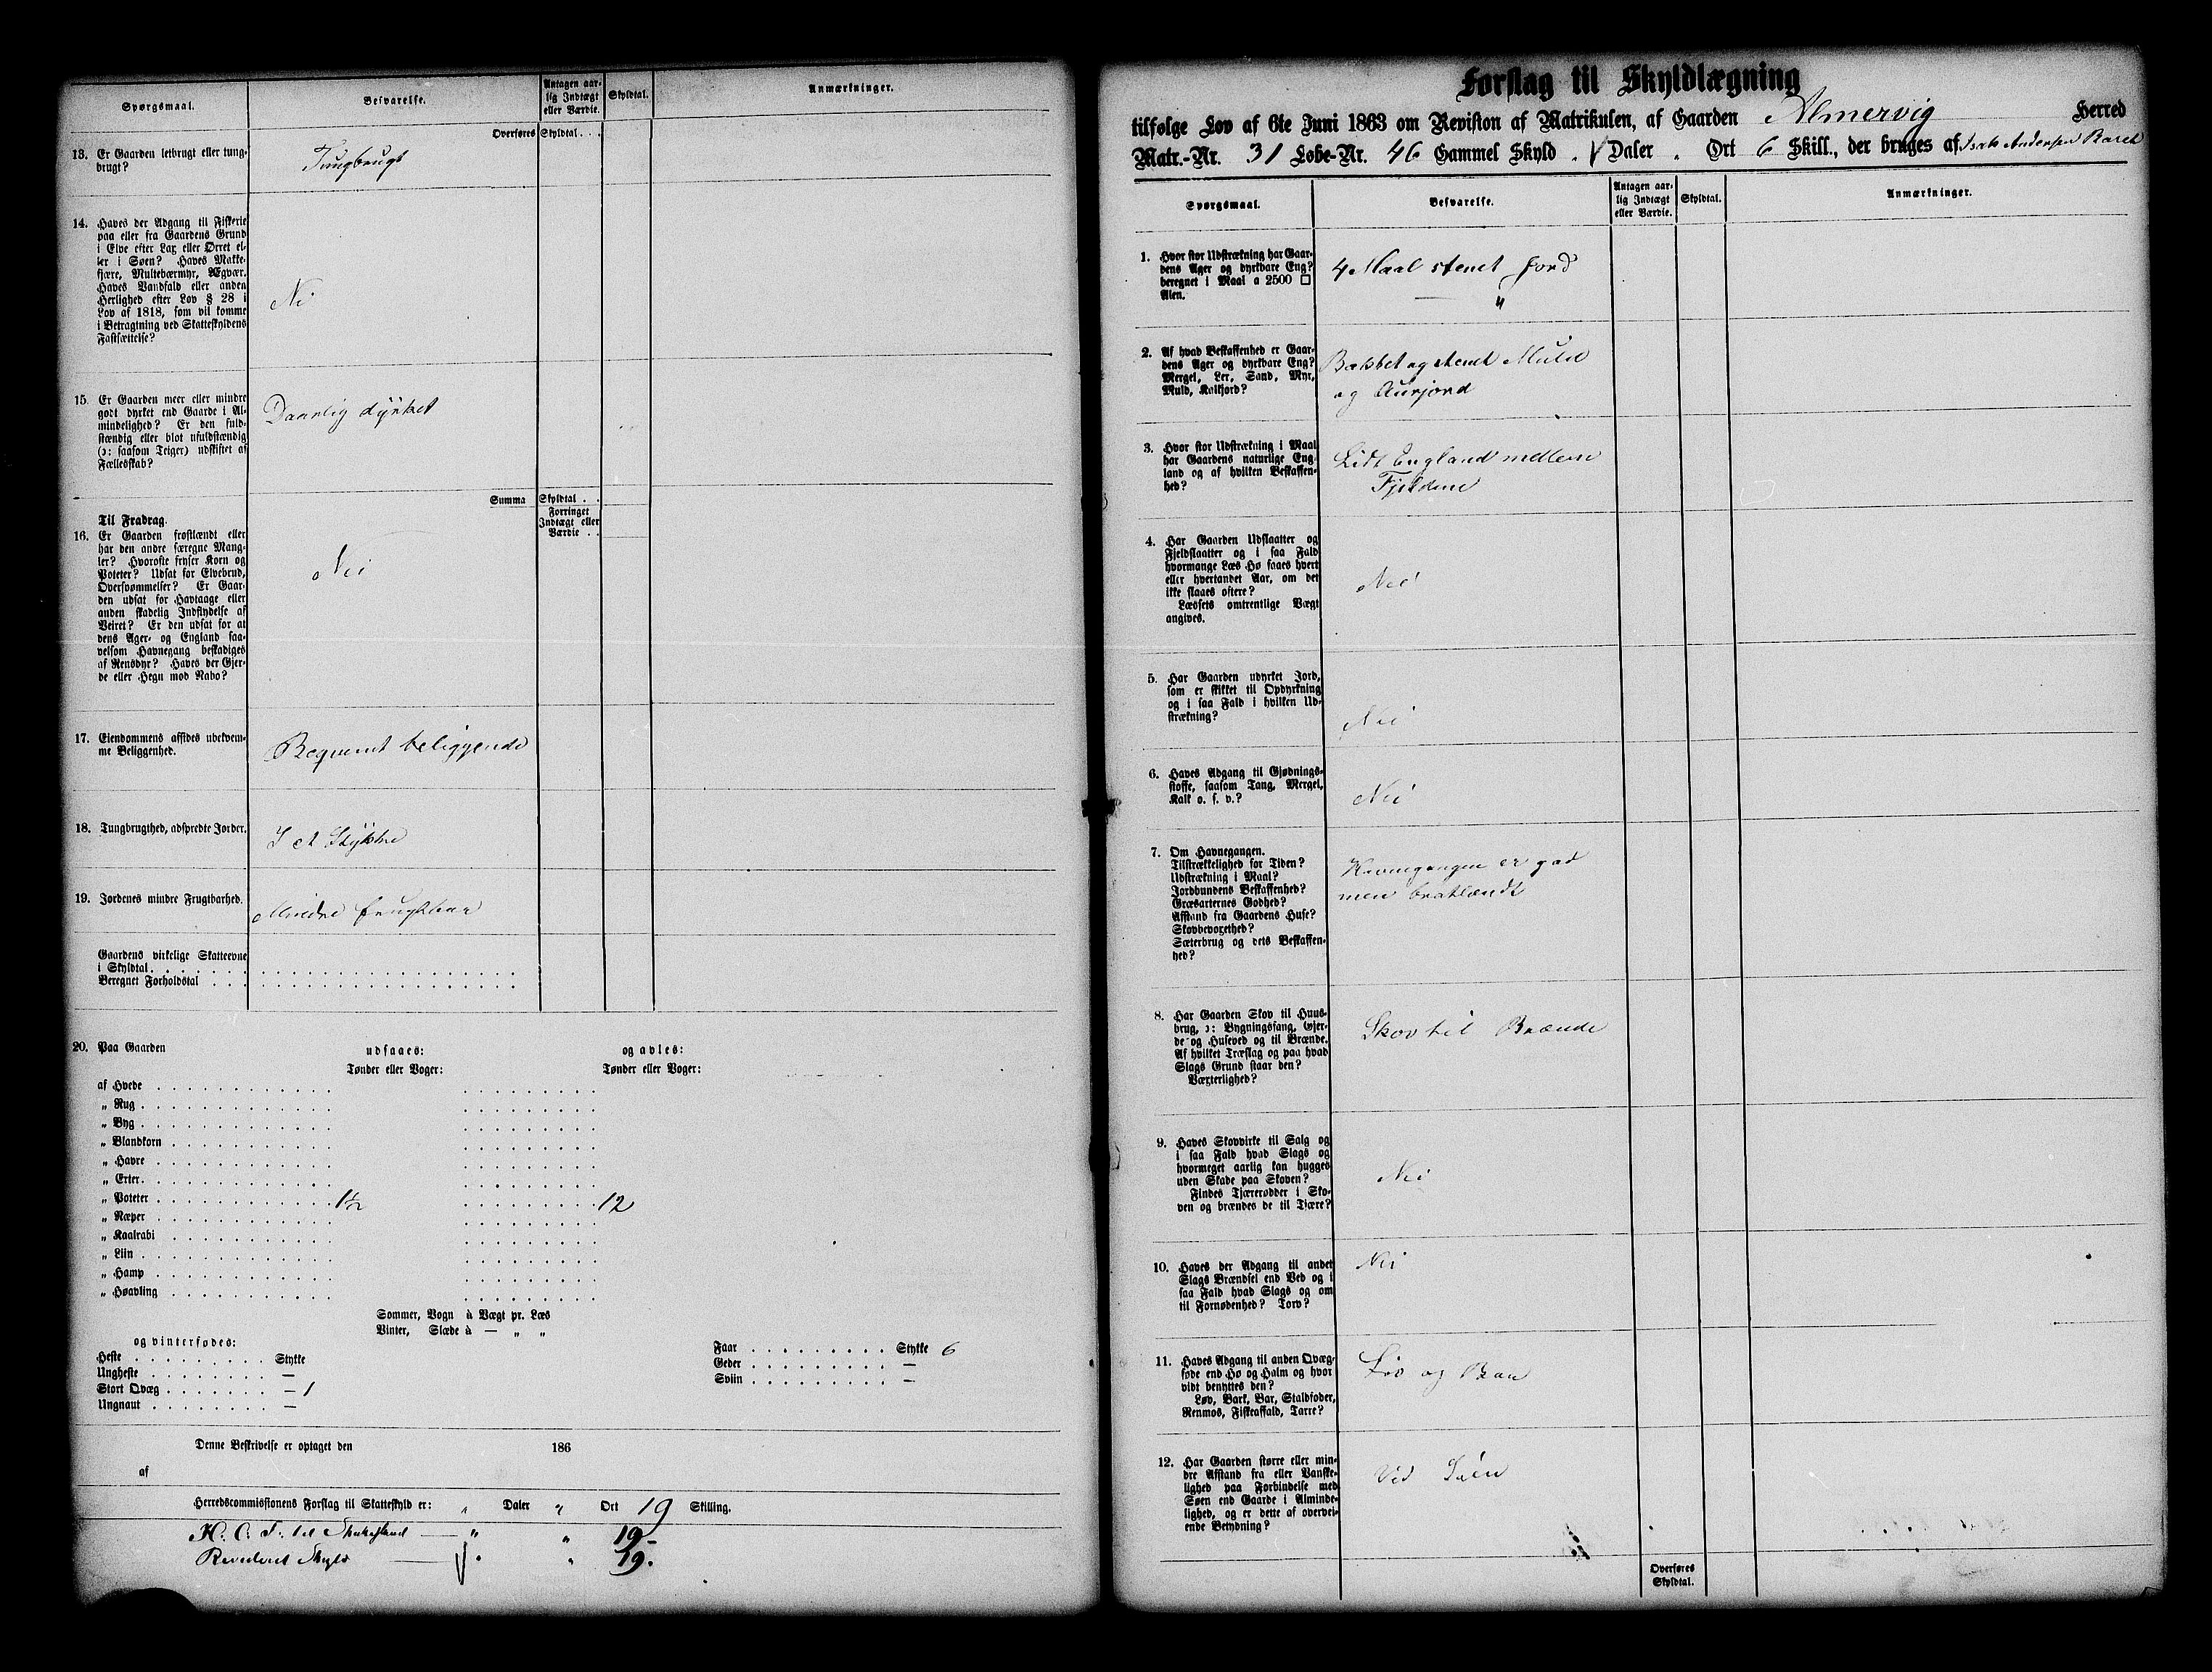 Spørgsmaal.
Besvarelse.
Antagen aar-
lig Indtægt
eller Værdie.
Skyldtal.
Anmærkninger.
Overføres Skyldtal . . .
13. Er Gaarden letbrugt eller tung-
brugt?
Tungbrugt
14. Haves der Adgang til Fiskerie
paa eller fra Gaardens Grund
i Elve efter Lax eller Ørret el-
ler i Søen? Haves Makke-
fjære, Multebærmyr, Ægvær.
Haves Vandfald eller anden
Herlighed efter Lov § 28 i
Lov af 1818, som vil komme
i Betragtning ved Skatteskyldens
Fastsættelse?
Nei
15. Er Gaarden meer eller mindre
godt dyrket end Gaarde i Al-
mindelighed? Er den fuld-
stændig eller blot ufuldstændig
(ɔ: saasom Teiger) udskiftet af
Fællesskab?
Daarlig dyrket
Summa Skyldtal . .
Forringet
Indtægt eller
Værdie . .
Til Fradrag.
16. Er Gaarden frostlændt eller
har den andre særegne Mang-
ler? Hvorofte fryser Korn og
Poteter? Udsat for Elvebrud,
Oversvømmelser? Er Gaar-
den udsat for Havtaage eller
anden skadelig Indflydelse af
Veiret? Er den udsat for at
dens Ager- og England saa-
velsom Havnegang beskadiges
af Rensdyr? Haves der Gjer-
de eller Hegn mod Nabo?
Nei
17. Eiendommens affides ubekvem-
me Beliggenhed.
Beqvemt beliggende
18. Tungbrugthed, adspredte Jorder.
I et Stykke
19. Jordenes mindre Frugtbarhed.
Mindre frugtbar
Gaardens virkelige Skatteevne
i Skyldtal
Beregnet Forholdstal
20. Paa Gaarden
udsaaes:
og avles:
Tønder eller Voger:
Tønder eller Voger:
af Hvede
„ Rug
„ Byg
„ Blandkorn
„ Havre
„ Erter
„ Poteter 1½ 12
„ Næper
„ Kaalrabi
„ Liin
„ Hamp
„ Høavling
Sommer, Vogn à Vægt pr. Læs
Vinter, Slæde à — „ „
og vinterfødes:
Heste Stykke
Ungheste —
Stort Qvæg — 1
Ungnaut —
Faar Stykke 6
Geder —
Sviin —
Denne Beskrivelse er optaget den 186
af
Herredscommissionens Forslag til Skatteskyld er: „ Daler „ Ort 19 Skilling.
H. C. F. til „ „ 19-
Revideret Skyld „ „ 19.
Forslag til Skyldlægning
tilfølge Lov af 6te Juni 1863 om Revision af Matrikulen, af Gaarden Almervig Herred
Matr.-Nr. 31 Løbe-Nr. 46 Gammel Skyld „ Daler „ Ort 6 Skill., der bruges af Isak Andersen
Spørgsmaal.
Besvarelse.
Antagen aar-
lig Indtægt
eller Værdie.
Skyldtal.
Anmærkninger.
1. Hvor stor Udstrækning har Gaar-
dens Ager og dyrkbare Eng?
beregnet i Maal a 2500 □
Alen.
4 Maal stenet Jord
— „
2. Af hvad Beskaffenhed er Gaar-
dens Ager og dyrkbare Eng?
Mergel, Ler, Sand, Myr,
Muld, Kalkjord?
Bakket og stenet Muld
og Aurjord
3. Hvor stor Udstrækning i Maal
har Gaardens naturlige Eng-
land og af hvilken Beskaffen-
hed?
Lidt England mellem
Fjeldene
4. Har Gaarden Udslaatter og
Fjeldslaatter og i saa Fald
hvormange Læs Hø saaes hvert
eller hvertandet Aar, om det
ikke slaaes oftere?
Læssets omtrentlige Vægt
angives.
Nei
5. Har Gaarden udyrket Jord,
som er skikket til Opdyrkning
og i saa Fald i hvilken Ud-
strækning?
Nei
6. Haves Adgang til Gjødnings-
stoffe, saasom Tang, Mergel,
Kalk o. s. v.?
Nei
7. Om Havnegangen.
Tilstrækkelighed for Tiden?
Udstrækning i Maal?
Jordbundens Beskaffenhed?
Græsarternes Godhed?
Afstand fra Gaardens Huse?
Skovbevoxethed?
Sæterbrug og dets Beskaffen-
hed?
Havnegangen er god
men bratlændt
8. Har Gaarden Skov til Huus-
brug, ɔ: Bygningsfang, Gjer-
de- og Huseved og til Brænde.
Af hvilket Træslag og paa hvad
Slags Grund staar den?
Værterlighed?
Skov til Brænde
9. Haves Skovvirke til Salg og
i saa Fald hvad Slags og
hvormeget aarlig kan hugges
uden Skade paa Skoven?
Findes Tjærerødder i Sko-
ven og brændes de til Tjære?
Nei
10. Haves der Adgang til andet
Slags Brændsel end Ved og i
saa Fald hvad Slags og om
til Fornødenhed? Torv?
Nei
11. Haves Adgang til anden Qvæg-
føde end Hø og Halm og hvor
vidt benyttes den?
Løv, Bark, Bar, Staldfoder,
Renmos, Fiskeaffald, Tarre?
Løv og Bar
12. Har Gaarden større eller min-
dre Afstand fra eller Vanske-
lighed paa Forbindelse med
Søen end Gaarde i Alminde-
lighed, og er dette af overvei-
ende Betydning?
Ved Søen
Overføres
Skyldtal.